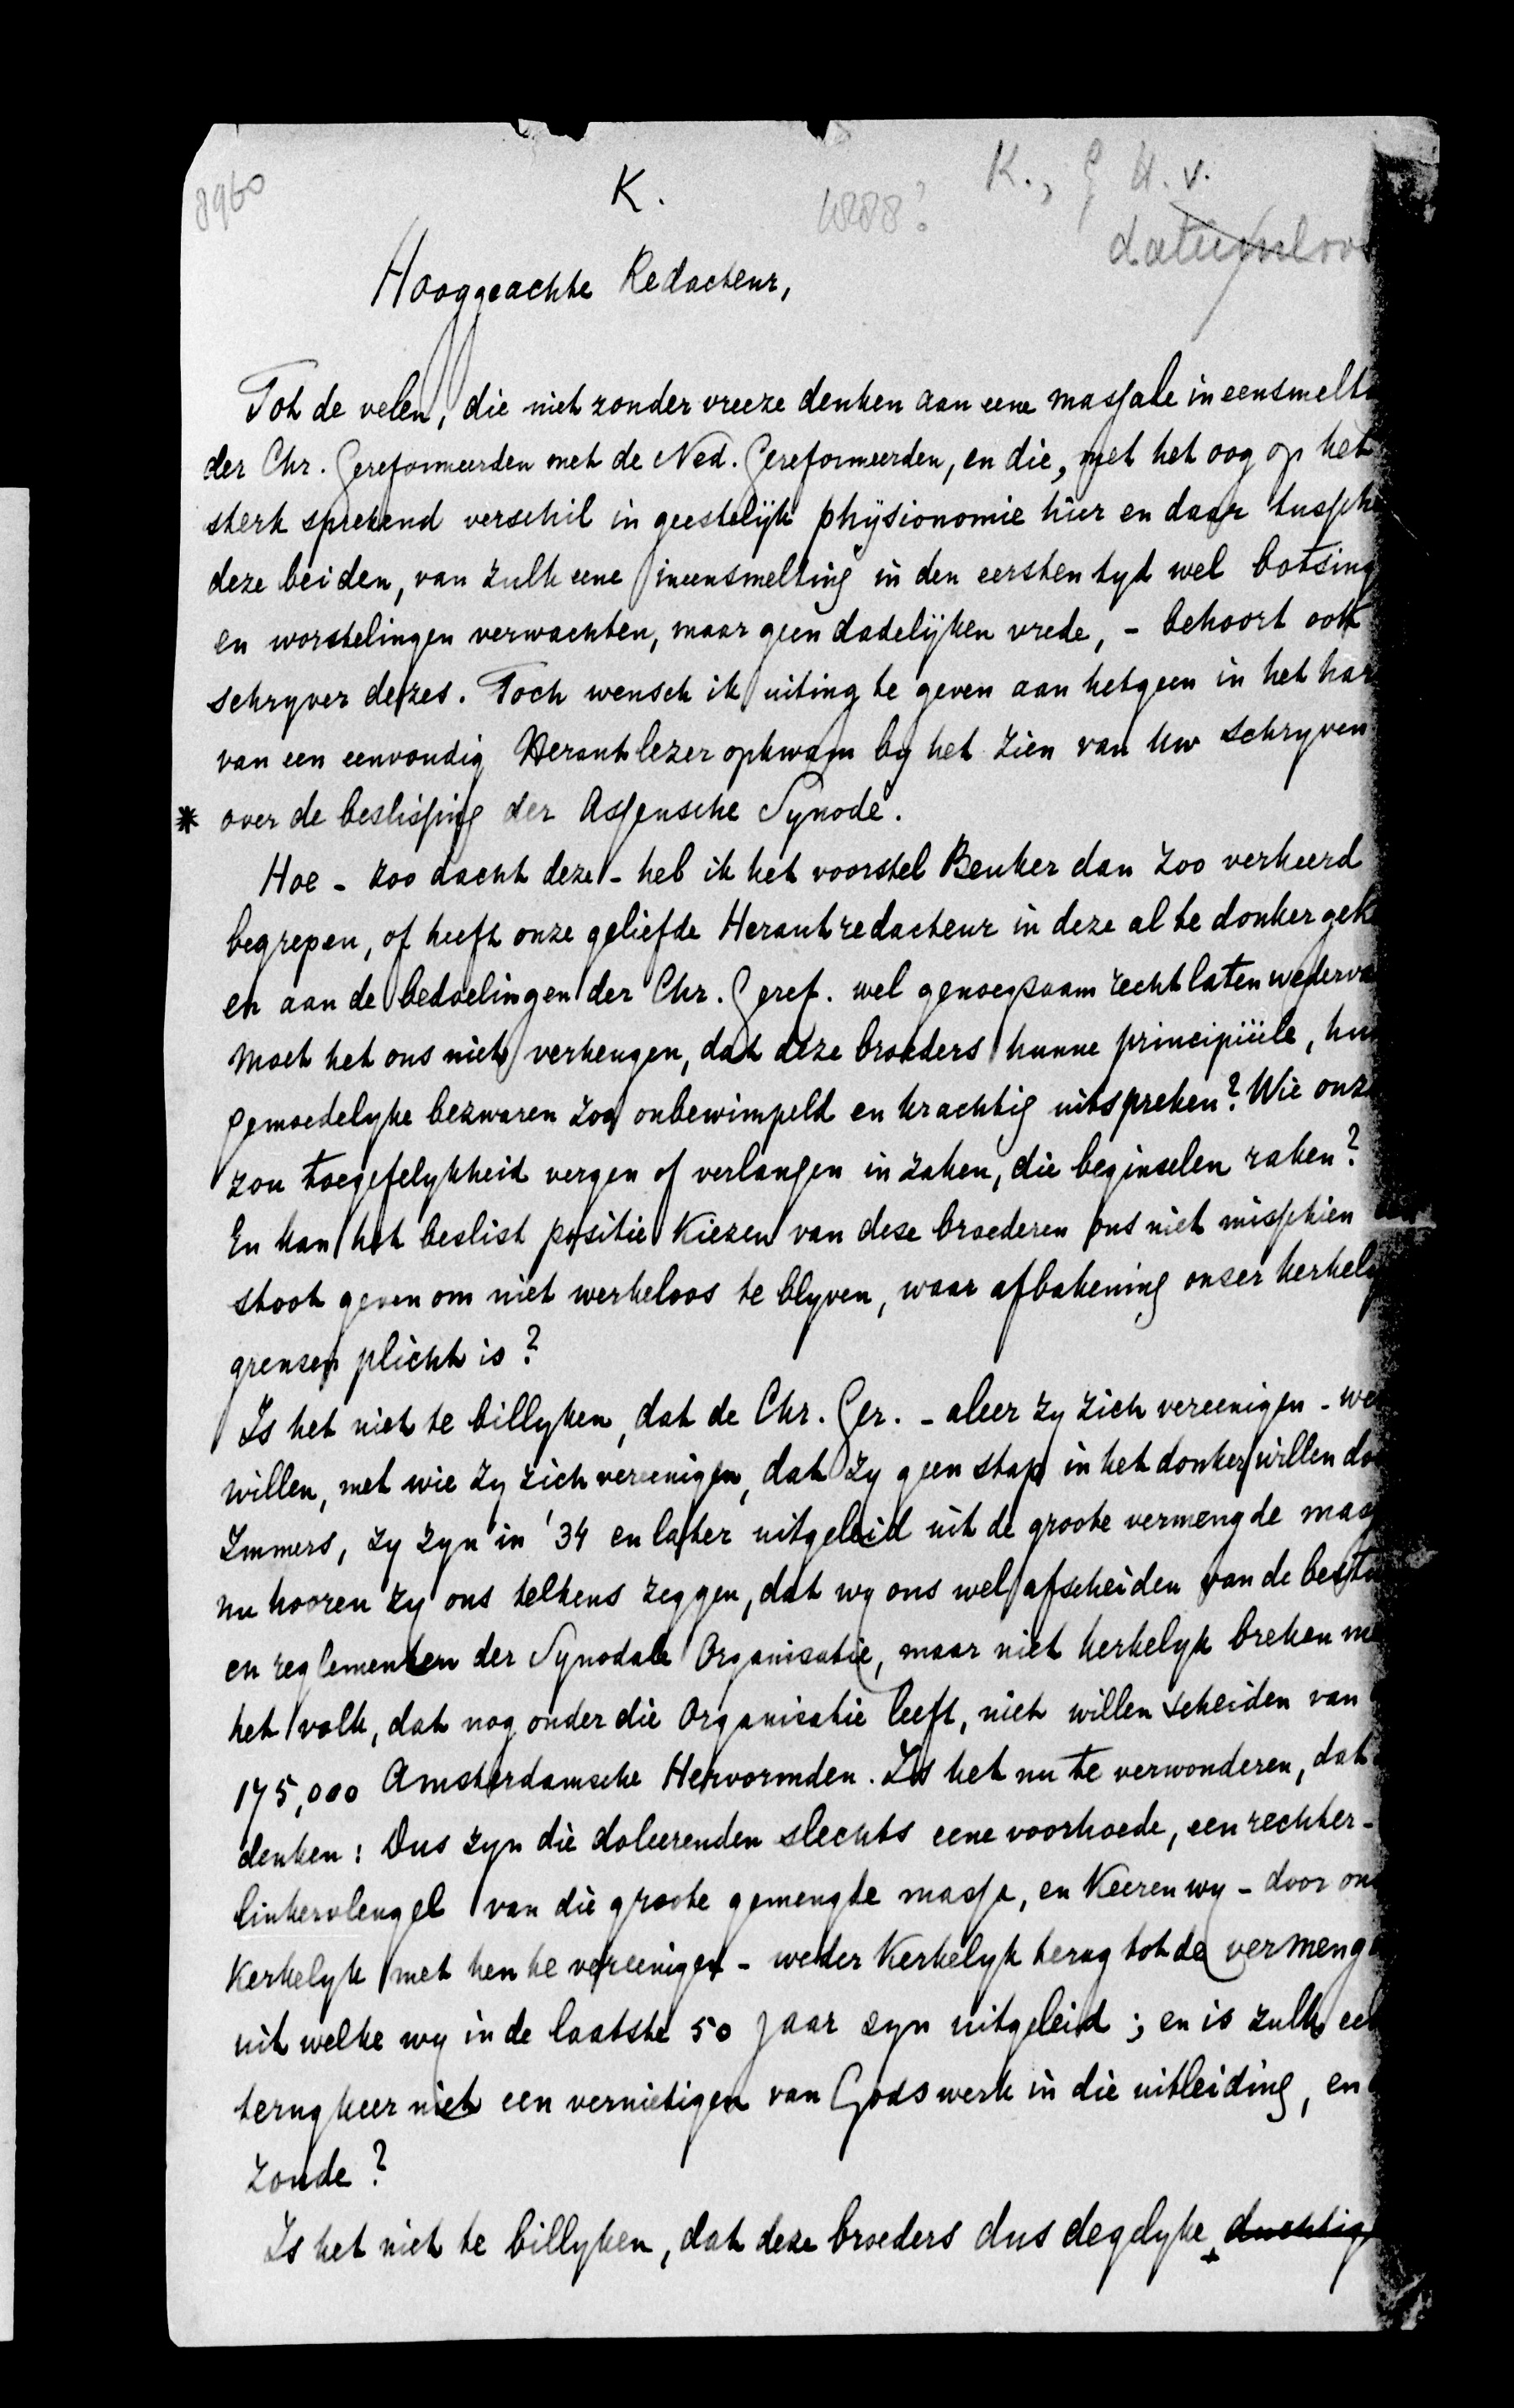 8960
K.
1888?
K., G H. v.
datumloos
Hooggeachte Redacteur,
Tot de velen, die niet zonder vreeze denken aan eene massale ineensmelt
der Chr. Gereformeerden met de Ned. Gereformeerden, en die, met het oog op het
sterk sprekend verschil in geestelijk physionomie hier en daar tussche
deze beiden, van zulk eene ineensmelting in den eersten tyd wel botsing
en worstelingen verwachten, maar geen dadelijken vrede, - behoort ook
schryver dezes. Toch wensch ik uiting te geven aan hetgeen in het har
van een eenvoudig Herautlezer opkwam by het zien van Uw schryven
* over de beslissing der Assensche Synode.
Hoe - zoo dacht deze - heb ik het voorstel Beuker dan zoo verkeerd
begrepen, of heeft onze geliefde Herautredacteur in deze al te donker gek
en aan de bedoelingen der Chr. Geref. wel genoegzaam recht laten wederva
Moet het ons niet verheugen, dat deze broeders hunne principiëele, hu
gemoedelyke bezwaren zoo onbewimpeld en krachtig uitspreken? Wie onze
zou toegefelykheid vergen of verlangen in zaken, die beginselen raken?
En kan het beslist positie kiezen van deze broederen ons niet misschien
stoot geven om niet werkeloos te blyven, waar afbakening onzer kerkely
grenzen plicht is?
Is het niet te billyken, dat de Chr. Ger. - aleer zy zich vereenigen - we
willen, met wie zy zich vereenigen, dat zy geen stap in het donker willen do
Immers, zy zyn in '34 en later uitgeleid uit de groote vermengde mas
nu hooren zy ons telkens zeggen, dat wy ons wel afscheiden van de bestu
en reglementen der Synodale Organisatie, maar niet kerkelyk breken me
het volk, dat nog onder die Organisatie leeft, niet willen scheiden van
175,000 Amsterdamsche Hervormden. Is het nu te verwonderen, dat
denken: Dus zyn die doleerenden slechts eene voorhoede, een rechter-
linkervleugel van die groote gemengde massa, en keeren wy - door ons
kerkelyk met hen te vereenigen - weder kerkelyk terug tot de vermeng
uit welke wy in de laatste 50 jaar zyn uitgeleid; en is zulk een
terugkeer niet een vernietigen van Gods werk in die uitleiding, en
zonde?
Is het niet te billyken, dat deze broeders dus degelyke + duchtig